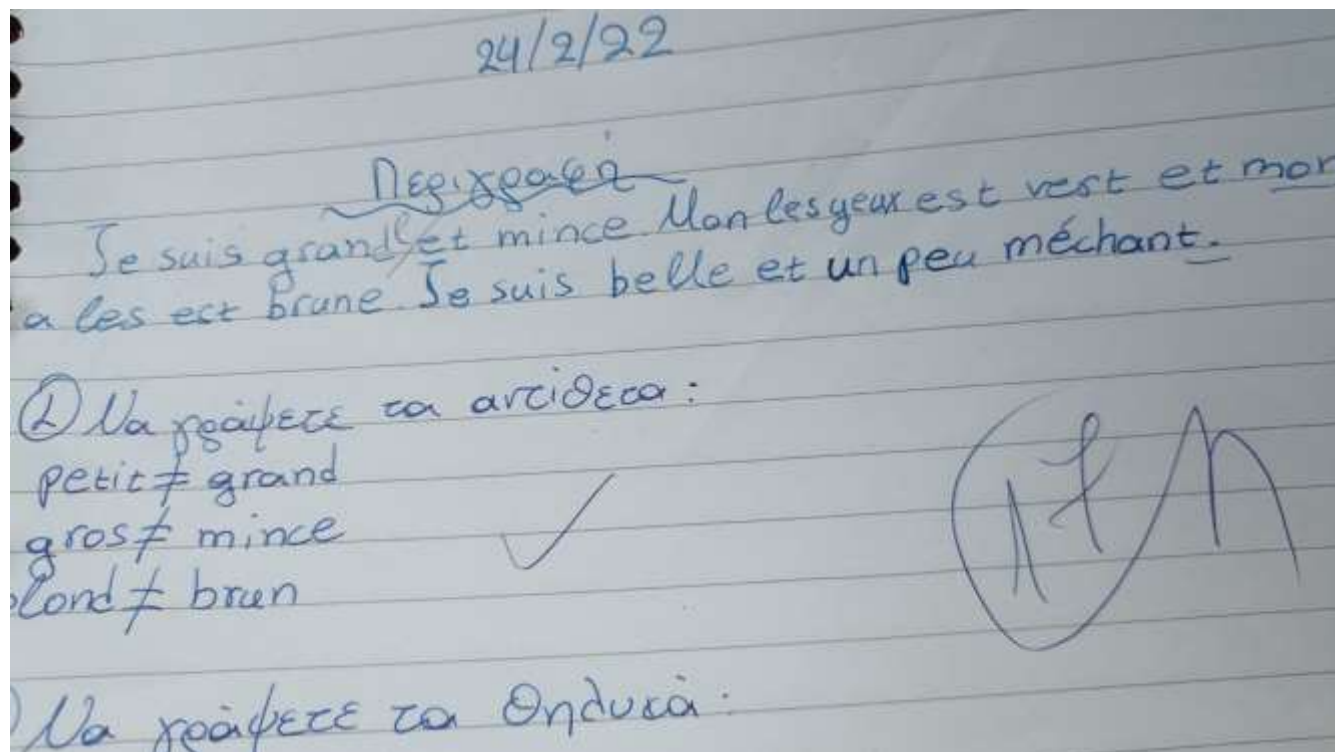 24/2/22
Περιγραφή
Je suis grand et mince Mon les yeux est vert et mon
a les est brune Je suis belle et un peu méchant.
① Να γράψετε τα αντίθετα:
petit ≠ grand
gros ≠ mince
blond ≠ brun
Να γράψετε τα θηλυκά: